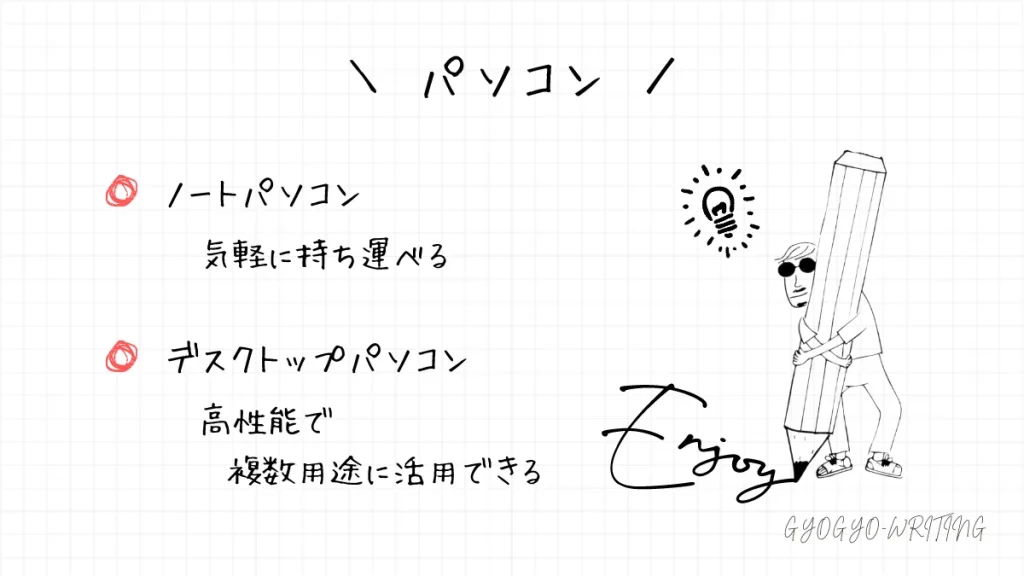 \ パソコン /
ノートパソコン
気軽に持ち運べる
デスクトップパソコン
高性能で
複数用途に活用できる
Enjoy
GYOGYO-WRITING